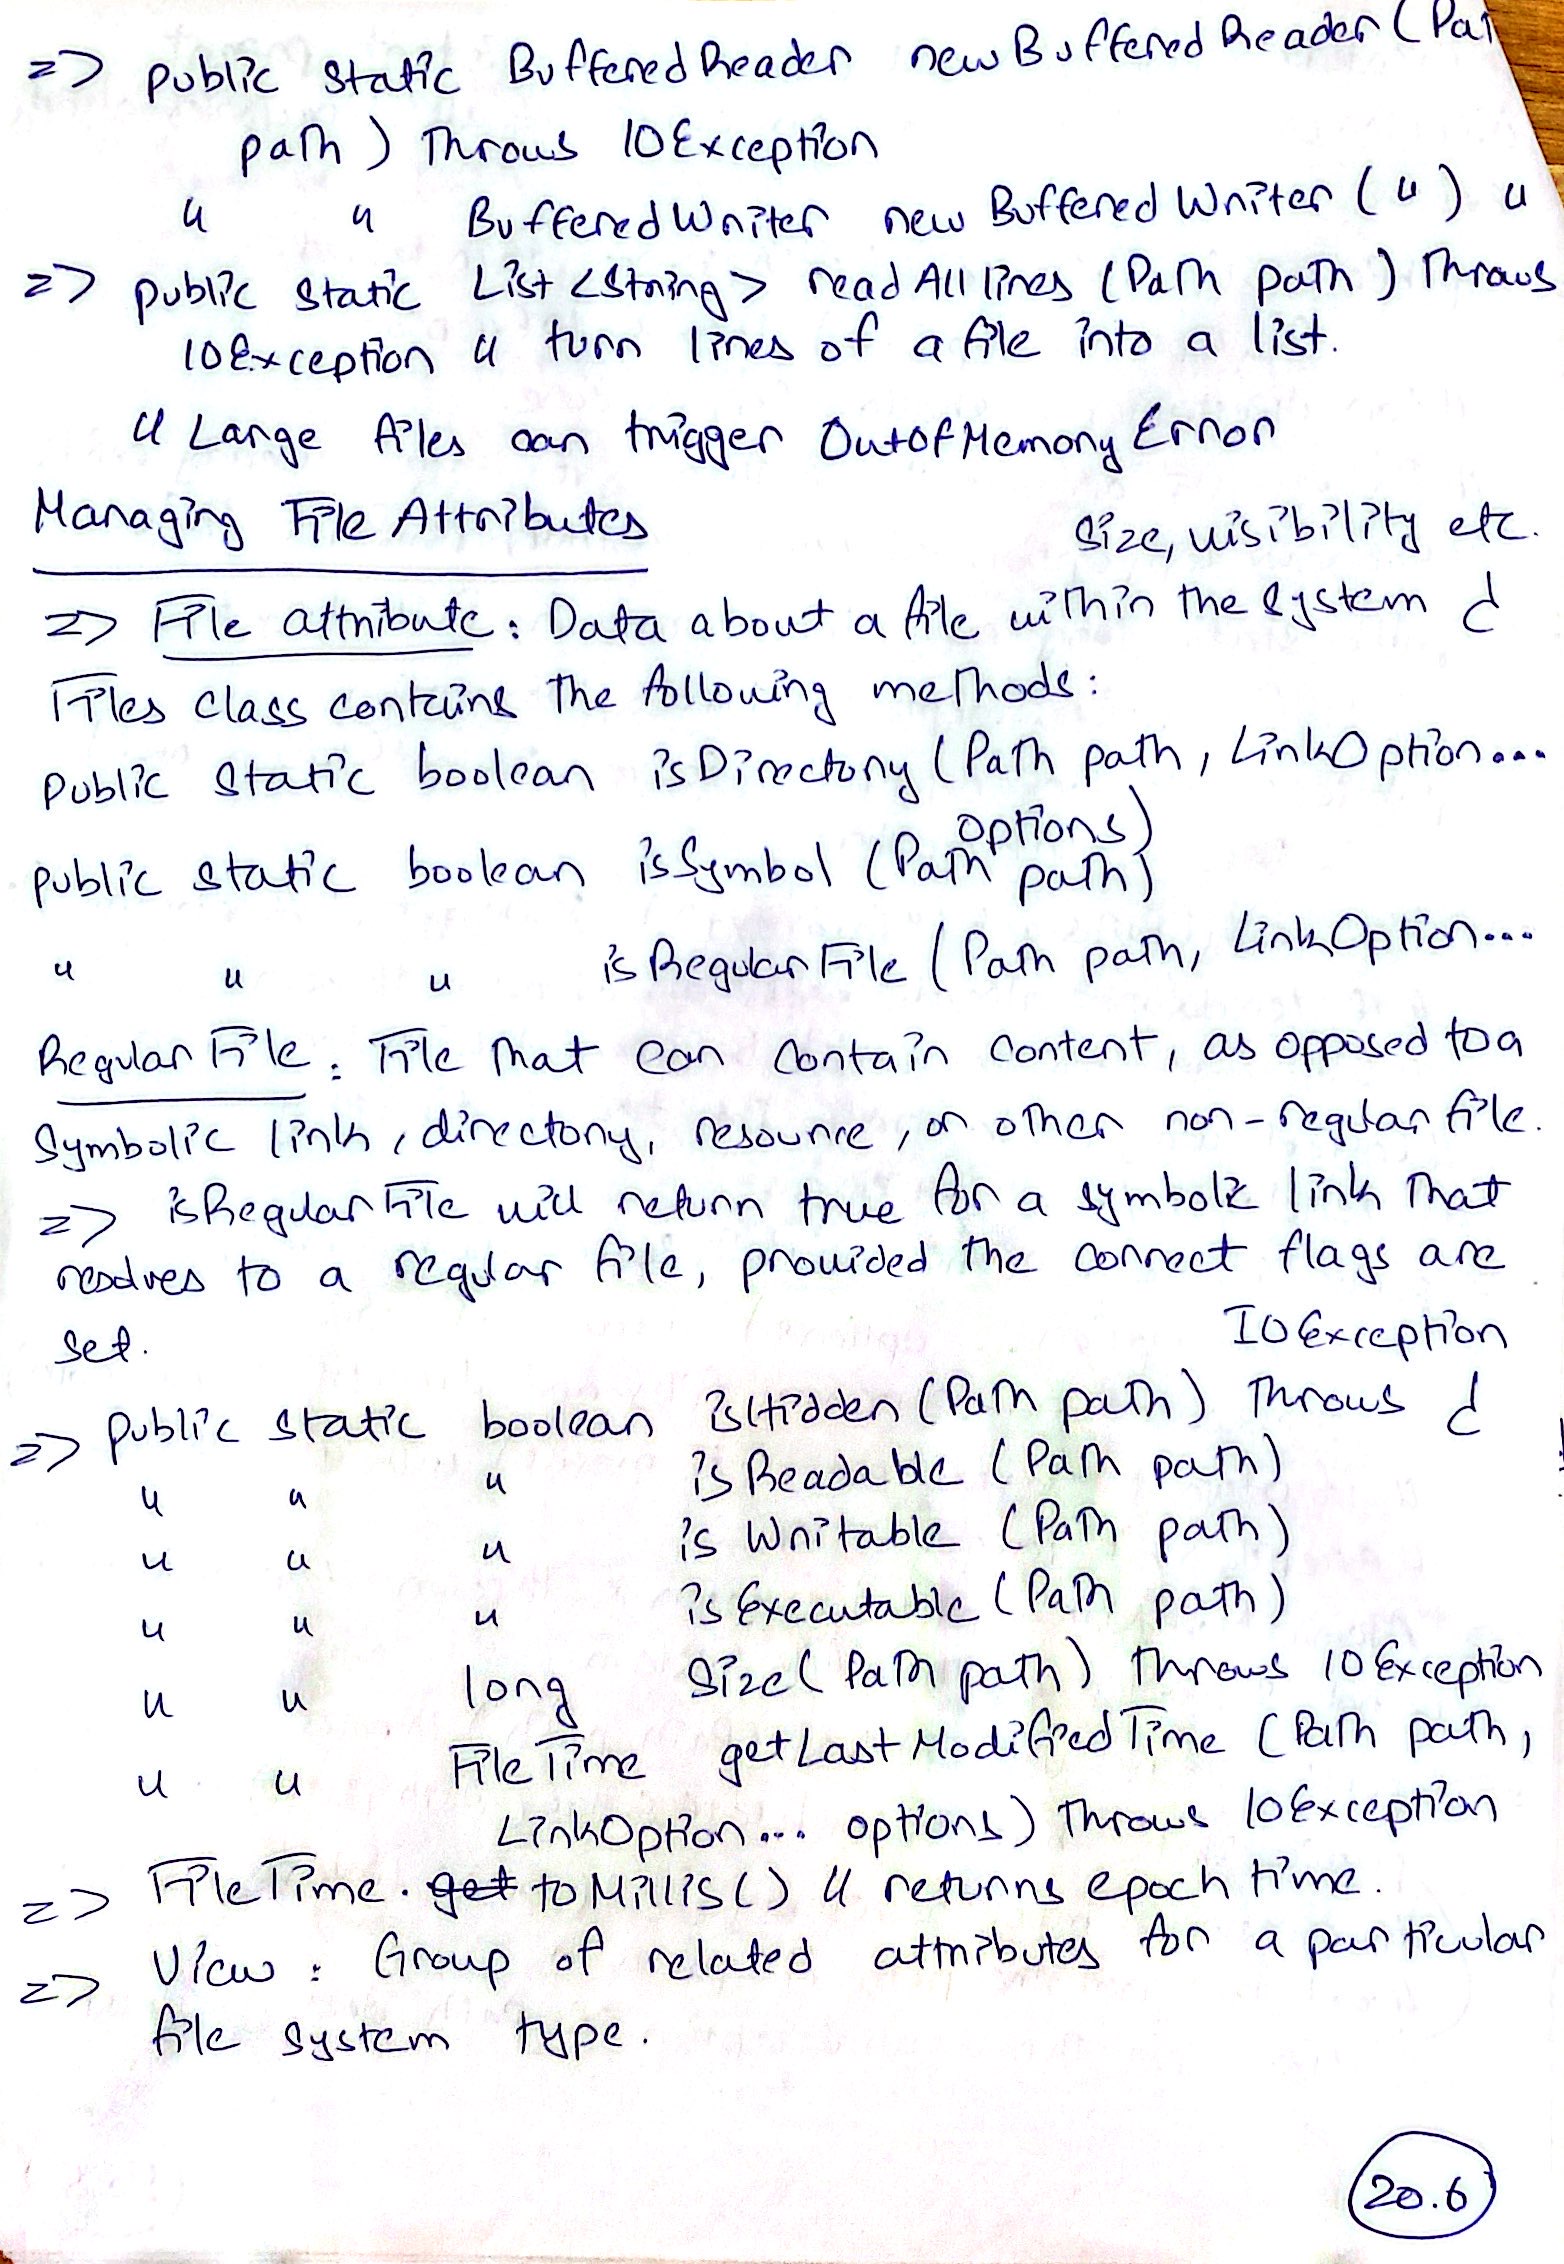 => public static BufferedReader newBufferedReader (Pat
path) throws IOException
" " BufferedWriter new BufferedWriter (") "
=> public static List <String> readAllLines (Path path) throws
IOException // turn lines of a file into a list.
// Large files can trigger OutOfMemoryError
Managing File Attributes
size, visibility etc.
=> File attribute: Data about a file within the system
Files class contains the following methods:
public static boolean isDirectory (Path path, LinkOption...
options)
public static boolean isSymbol (Path path)
" " " isRegularFile (Path path, LinkOption...
Regular File: File that can contain content, as opposed to a
symbolic link, directory, resource, or other non-regular file.
=> isRegularFile will return true for a symbolic link that
resolves to a regular file, provided the correct flags are
set.
IOException
=> public static boolean isHidden (Path path) throws
" " " isReadable (Path path)
" " " isWritable (Path path)
" " " isExecutable (Path path)
" " long size (Path path) throws IOException
" " FileTime getLastModifiedTime (Path path,
LinkOption... options) throws IOException
=> FileTime. get toMillis() // returns epoch time.
=> View: Group of related attributes for a particular
file system type.
20.6